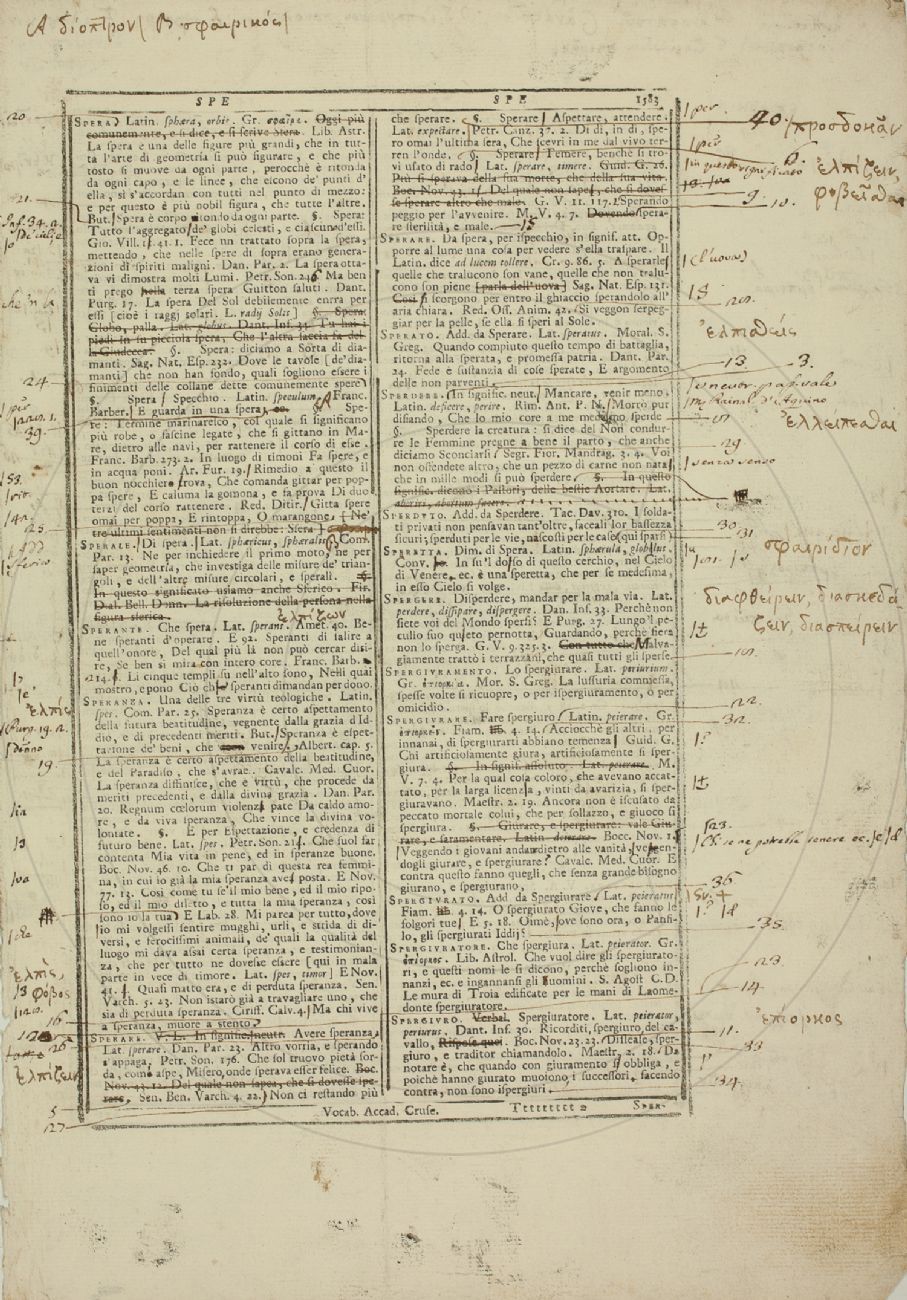 A δίοπτρον| B σφαιρικός|
SPE
SPE 1583
SPERA Latin. sphæra, orbis. Gr. σφαῖρα. Oggi più
comunemente, e si dice, e si scrive Sfera. Lib. Astr.
La spera è una delle figure più grandi, che in tut-
ta l'arte di geometria si può figurare, e che più
tosto si muove da ogni parte, perocchè è ritonda
da ogni capo, e le linee, che escono de' punti d'
ella, si s'accordan con tutti nel punto di mezzo:
e per questo è più nobil figura, che tutte l'altre.
But. Spera è corpo ritondo da ogni parte. §. Spera:
Tutto l'aggregato de' globi celesti, e ciascun d'essi.
Gio. Vill. 41. 1. Fece un trattato sopra la spera,
mettendo, che nelle spere di sopra erano genera-
zioni di spiriti maligni. Dan. Par. 2. La spera otta-
va vi dimostra molti Lumi. Petr. Son. 246 Ma ben
ti prego nella terza spera Guitton saluti. Dant.
Purg. 17. La spera Del Sol debilemente entra per
essi [cioè i raggj solari. L. radij Solis] §. Spera:
Globo, palla. Lat. globus. Dant. Inf. 34. Tu hai i
piedi In su picciola spera, Che l'altra faccia fa del-
la Giudecca. §. Spera: diciamo a Sorta di dia-
manti. Sag. Nat. Esp. 232. Dove le tavole [de' dia-
manti] che non han fondo, quali sogliono essere i
finimenti delle collane dette comunemente spere
§. Spera Specchio. Latin. speculum Franc.
Barber. E guarda in una spera §. Spe-
re: Termine marinaresco, col quale si significano
più robe, o fascine legate, che si gittano in Ma-
re, dietro alle navi, per rattenere il corso di esse.
Franc. Barb. 273. 2. In luogo di timoni Fa spere, e
in acqua poni. Ar. Fur. 19. Rimedio a questo il
buon nocchiero trova, Che comanda gittar per pop-
pa spere, E caluma la gomona, e fa prova Di duo
terzi del corso rattenere. Red. Ditir. Gitta spere
omai per poppa, E rintoppa, O marangone, [Ne'
tre ultimi sentimenti non si direbbe: Sfera]
SPERALE. Di spera. Lat. sphæricus, sphæralis Com.
Par. 13. Ne per inchiedere il primo moto, ne per
saper geometria, che investiga delle misure de' trian-
goli, e dell'altre misure circolari, e sperali. §.
In questo significato usiamo anche Sferico. Fir.
Dial. Bell. Donn. La risoluzione della persona nella
figura sferica.
ἐλπίζων
SPERANTE. Che spera. Lat. sperans. Amet. 40. Be-
ne speranti d'operare. E 92. Speranti di salire a
quell'onore, Del qual più là non può cercar disi-
re, Se ben si mira con intero core. Franc. Barb.
214. Li cinque templi su nell'alto sono, Nelli quai
mostro, e pono Ciò ch speranti dimandan per dono.
SPERANZA. Una delle tre virtù teologiche. Latin.
spes. Com. Par. 25. Speranza è certo aspettamento
della futura beatitudine, vegnente dalla grazia d'Id-
dio, e di precedenti meriti. But. Speranza è espet-
tazione de' beni, che venire Albert. cap. 5.
La speranza è certo aspettamento della beatitudine,
e del Paradiso, che s'avrae. Cavalc. Med. Cuor.
La speranza distintsce, che è virtù, che procede da
meriti precedenti, e dalla divina grazia. Dan. Par.
20. Regnum cœlorum violenza pate Da caldo amo-
re, e da viva speranza, Che vince la divina vo-
lontate. §. E per Espettazione, e credenza di
futuro bene. Lat. spes. Petr. Son. 21. Che suol far
contenta Mia vita in pene, ed in speranze buone.
Boc. Nov. 46. 10. Che ti par di questa rea femmi-
na, in cui io già la mia speranza avea posta. E Nov.
77. 13. Così come tu se' il mio bene, ed il mio ripo-
so, ed il mio diletto, e tutta la mia speranza, così
sono io la tua E Lab. 28. Mi parea per tutto, dove
io mi volgessi sentire mugghi, urli, e strida di di-
versi, e ferocissimi animali, de' quali la qualità del
luogo mi dava assai certa speranza, e testimonian-
za, che per tutto ne dovesse essere [qui in mala
parte in vece di timore. Lat. spes, timor] E Nov.
41. Quasi matto era, e di perduta speranza. Sen.
Varch. 5. 23. Non istarò già a travagliare uno, che
sia di perduta speranza. Ciriff. Calv. 4. Ma chi vive
a speranza, muore a stento
SPERARE. V. L. In signific. neutr. Avere speranza
Lat. sperare. Dan. Par. 23. Altro vorria, e sperando
s'appaga, Petr. Son. 176. Che sol truovo pietà sor-
da, com'aspe, Misero, onde sperava esser felice. Boc.
Nov. 43. 12. Del quale non sapea, che si dovesse spe-
rare. Sen. Ben. Varch. 4. 22. Non ci restando più
che sperare. §. Sperare Aspettare, attendere.
Lat. expectare. Petr. Canz. 37. 2. Di dì, in dì, spe-
ro omai l'ultima sera, Che scevri in me dal vivo ter-
ren l'onde. §. Sperare Temere, benchè si tro-
vi usato di rado Lat. sperare, timere. Guid. G. 26.
Più si sperava della sua morte, che della sua vita.
Boc. Nov. 43. 1. Del quale non sapea, che si doves-
se sperare altro che male. G. V. 11. 117. Sperando
peggio per l'avvenire. M. V. 4. 7. Dovendo spera-
re sterilità, e male.
SPERARE. Da spera, per ispecchio, in signif. att. Op-
porre al lume una cosa per vedere s'ella traspare. Il
Latin. dice ad lucem tollere. Cr. 9. 86. 5. A sperarle
quelle che tralucono son vane, quelle che non tralu-
cono son piene [parla dell'uova] Sag. Nat. Esp. 131.
Così si scorgono per entro il ghiaccio sperandolo all'
aria chiara. Red. Oss. Anim. 42. Si veggon serpeg-
giar per la pelle, se ella si speri al Sole.
SPERATO. Add. da Sperare. Lat. speratus. Moral. S.
Greg. Quando compiuto questo tempo di battaglia,
ritorna alla sperata, e promessa patria. Dant. Par.
24. Fede è sustanzia di cose sperate, E argomento
delle non parventi.
SPERDERE. In signific. neut. Mancare, venir meno.
Latin. deficere, perire. Rim. Ant. P. N. Morto pur
disiando, Che lo mio core a me medesmo sperde
§. Sperdere la creatura: si dice del Non condur-
re le Femmine pregne a bene il parto, che anche
diciamo Sconciarsi Segr. Fior. Mandrag. 3. 4. Voi
non offendete altro, che un pezzo di carne non nata,
che in mille modi si può sperdere §. In questo
signific. dicono i Pastori, delle bestie Aortare. Lat.
abortiri, abortum facere
SPERDUTO. Add. da Sperdere. Tac. Dav. 310. I solda-
ti privati non pensavan tant'oltre, faceali lor bassezza
sicuri; sperduti per le vie, nascosti per le case [qui sparsi]
SPERETTA. Dim. di Spera. Latin. sphærula, globulus.
Conv. In su'l dosso di questo cerchio, nel Cielo
di Venere, ec. è una speretta, che per se medesima,
in esso Cielo si volge.
SPERGERE. Disperdere, mandar per la mala via. Lat.
perdere, dissipare, dispergere. Dan. Inf. 33. Perchè non
siete voi del Mondo spersi? E Purg. 27. Lungo'l pe-
cullo suo quieto pernotta, Guardando, perchè fiera
non lo sperga. G. V. 9. 325. 3. Con tutto che Malva-
giamente trattò i terrazzani, che quasi tutti gli sperse.
SPERGIURAMENTO. Lo spergiurare. Lat. perjurium.
Gr. ἐπιορκία. Mor. S. Greg. La lussuria commessa,
spesse volte si ricuopre, o per ispergiuramento, o per
omicidio.
SPERGIURARE. Fare spergiuro Latin. pejerare. Gr.
ἐπιορκεῖν. Fiam. 4. 14. Acciocchè gli altri, per
innanzi, di spergiurarti abbiano temenza Guid. G.
Chi artificiosamente giura, artificiosamente si sper-
giura. §. In signif. assoluto. Lat. pejerare. M.
V. 7. 4. Per la qual cosa coloro, che avevano accat-
tato, per la larga licenzia, vinti da avarizia, si sper-
giuravano. Maestr. 2. 19. Ancora non è iscusato da
peccato mortale colui, che per sollazzo, e giuoco si
spergiura. §. Giurare, e spergiurare: vale Giu-
rare, e saramentare. Latin. dejerare. Bocc. Nov. 1.
Veggendo i giovani andar dietro alle vanità, veggen-
dogli giurare, e spergiurare? Cavalc. Med. Cuor. E
contra questo fanno quegli, che senza grande bisogno
giurano, e spergiurano.
SPERGIURATO. Add. da Spergiurare Lat. pejeratus
Fiam. 4. 14. O spergiurato Giove, che fanno le
folgori tue? E 5. 18. Oimè, dove sono ora, o Panfi-
lo, gli spergiurati Iddij
SPERGIURATORE. Che spergiura. Lat. pejerator. Gr.
ἐπίορκος. Lib. Astrol. Che vuol dire gli spergiurato-
ri, e questi nomi le si dicono, perchè sogliono in-
nanzi, ec. e ingannansi gli uomini. S. Agost C. D.
Le mura di Troia edificate per le mani di Laome-
donte spergiuratore.
SPERGIURO. Verbal. Spergiuratore. Lat. pejerator,
perjurus. Dant. Inf. 30. Ricorditi, spergiuro, del ca-
vallo, Rispose quei. Boc. Nov. 23. 23. Disleale, sper-
giuro, e traditor chiamandolo. Maestr. 2. 18. Da
notare è, che quando con giuramento si obbliga, e
poichè hanno giurato muoiono, i successori, facendo
contra, non sono ispergiuri.
Vocab. Accad. Cruse. Ttttttttt 2 SPER-
20
21.
24
39
25
ἐλπὶς
19
ἐλπὶς,
φόβος
16
26
ἐλπίζειν
5
27
40. προσδοκᾶν
ἐλπίζειν,
φοβεῖσθαι
9. 10.
(l'uova)
ἐλπισθείς
13. 3.
ἐλλείπεσθαι
29
senza senso
30. 31
σφαιρίδιον
διαφθείρειν, διασκεδά
ζειν, διασπείρειν
22.
32.
23.
36
35.
23
14
ἐπίορκος
11.
33
34.